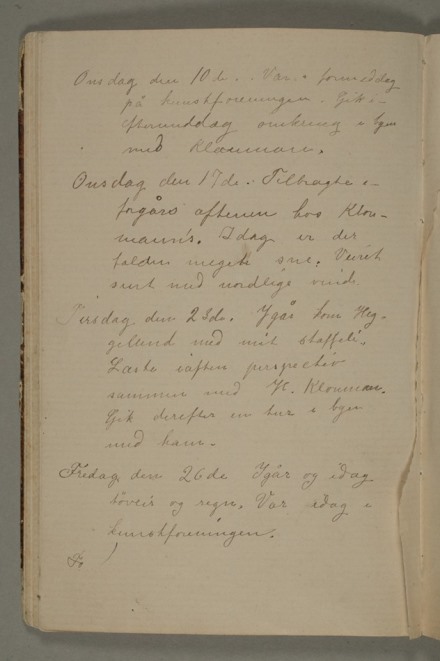 Onsdag den 10de. Var i formiddag
på kunstforeningen. Gik i
eftermiddag omkring i byen
med Klouman.
Onsdag den 17de. Tilbragte i
forgårs aftenen hos Klou-
mann's. Idag er der
falden meget sne. Veiret
surt med nordlig vind.
Tirsdag den 23de. Ygår kom Heg-
gelund med mit staffeli.
Læste iaften perspectiv
sammen med K. Klouman.
Gik derefter en tur i byen
med ham.
Fredag den 26de Ygår og idag
töveir og regn. Var idag i
kunstforeningen.